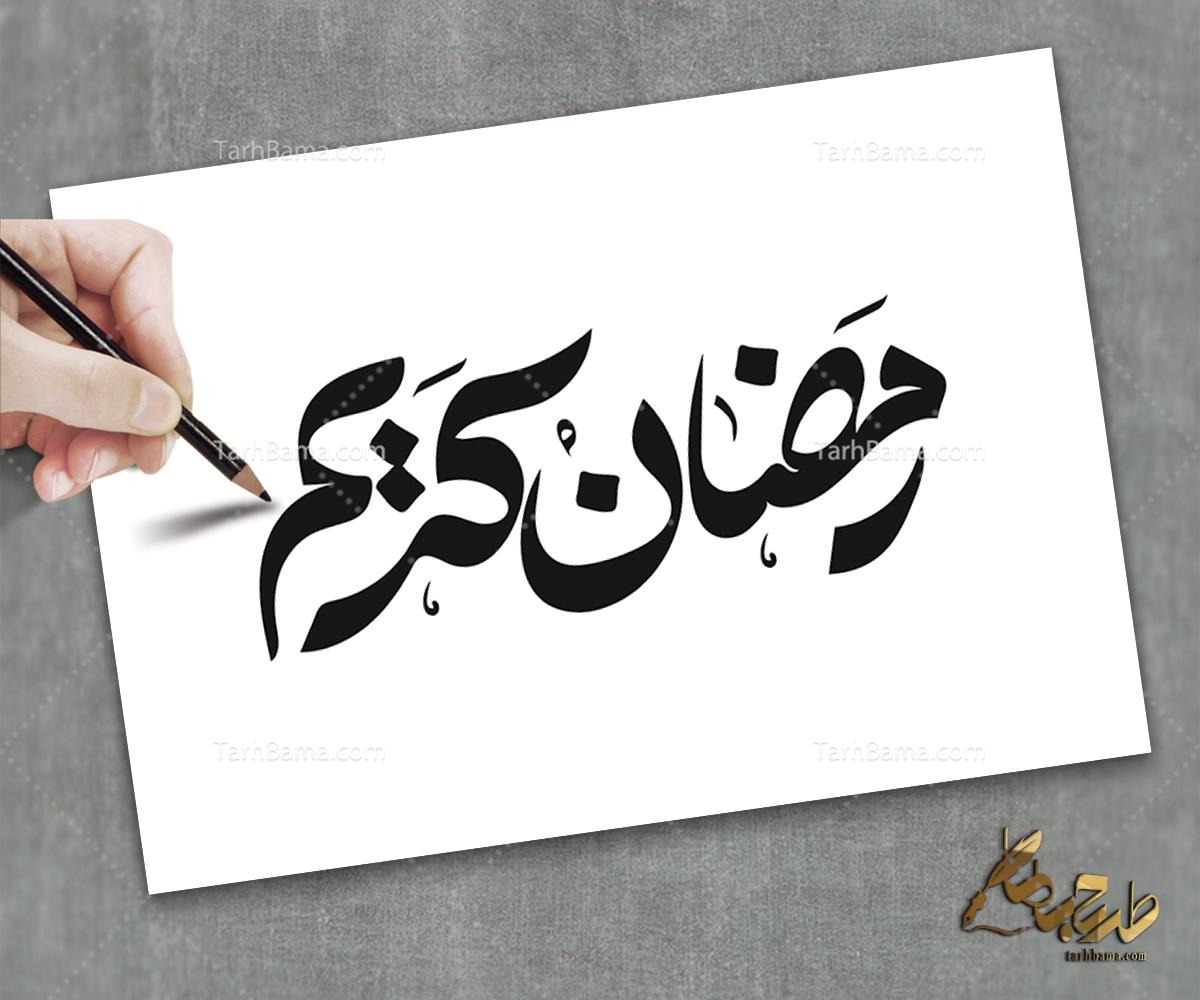 TarhBama.com TarhBama.com
رمضان كريم
TarhBama.com TarhBama.com
TarhBama.com TarhBama.com
طرح با ما
tarhbama.com